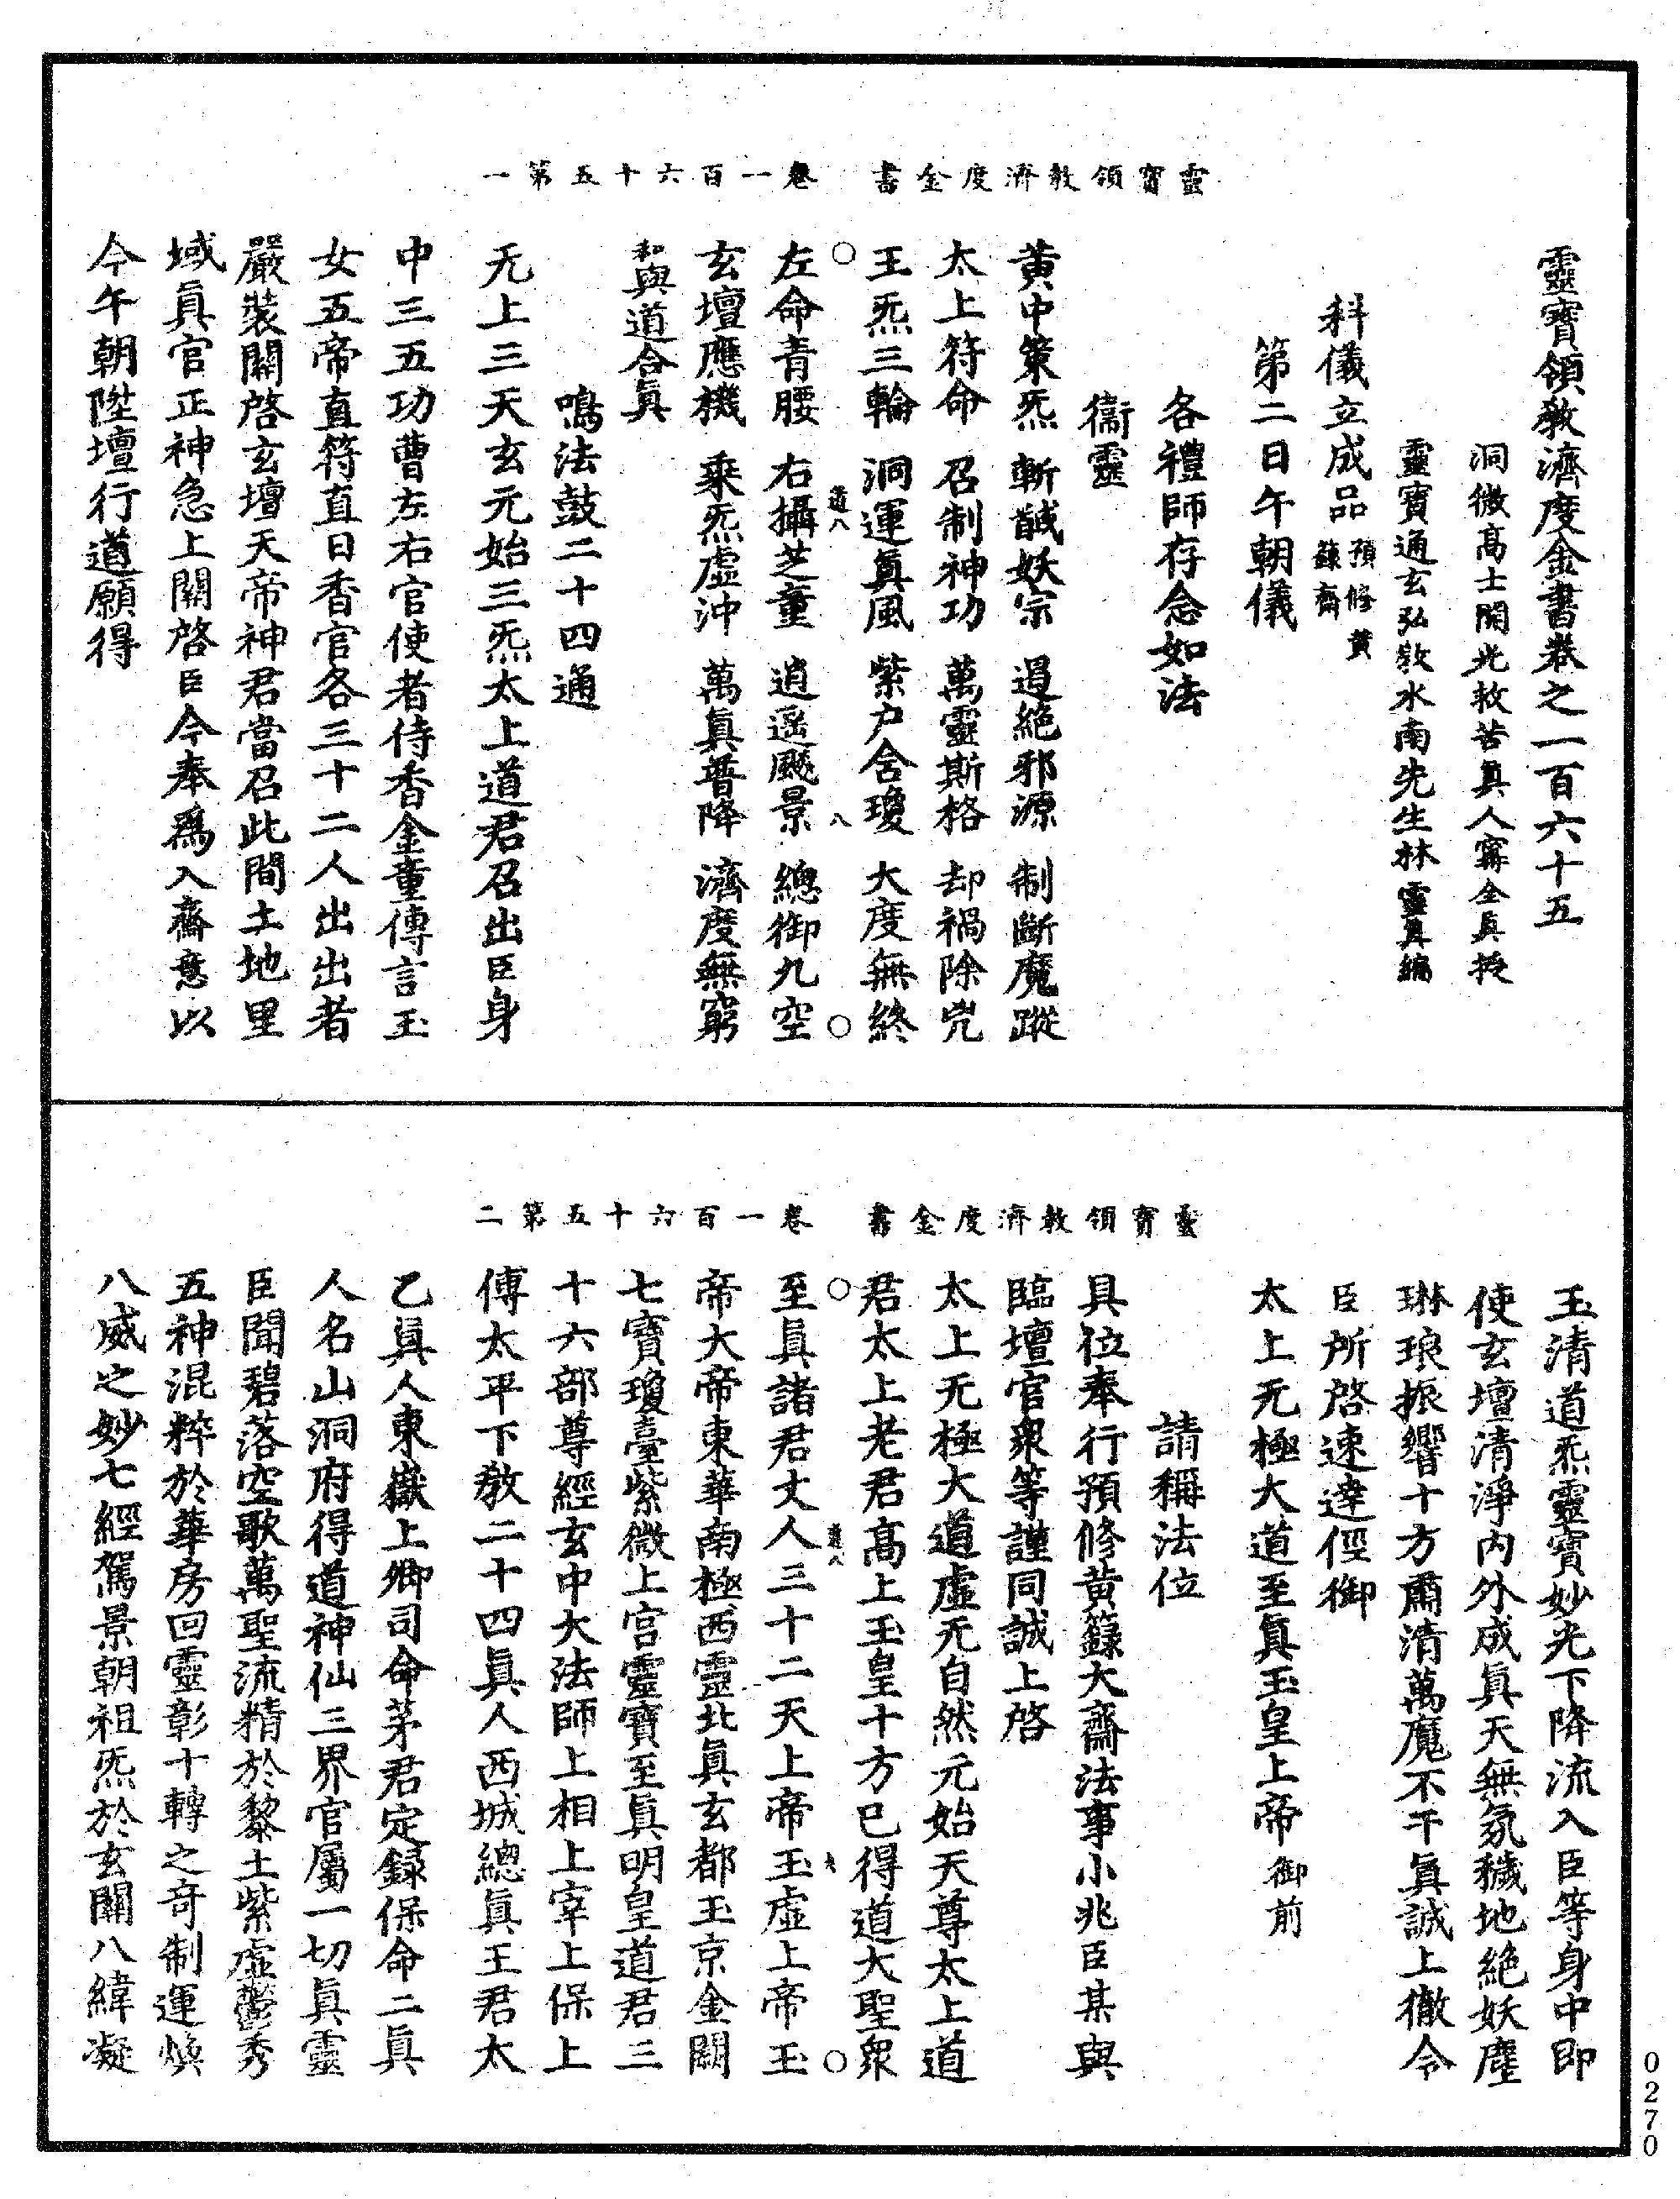 靈寶領教濟度金書　卷一百六十五第一
靈寶領敎濟度金書卷之一百六十五
洞微高士開光救苦眞人甯全眞授
靈寶通玄弘敎水南先生林靈眞編
科儀立成品預修黃籙齋
第二日午朝儀
各禮師存念如法
衞靈
黃中策炁　斬馘妖宗　遏絕邪源　制斷魔蹤
太上符命　召制神功　萬靈斯格　却禍除兇
王炁三輪　洞運眞風　紫户含瓊　大度無終
○　道八　八　○
左命青腰　右攝芝童　逍遥飈景　總御九空
玄壇應機　乘炁虛沖　萬眞普降　濟度無窮
和與道合眞
鳴法鼓二十四通
无上三天玄元始三炁太上道君召出臣身
中三五功曹左右官使者侍香金童傳言玉
女五帝直符直日香官各三十二人出出者
嚴裝關啓玄壇天帝神君當召此間土地里
域眞官正神急上關啓臣今奉爲入齋意以
今午朝陞壇行道願得
靈寶領敎濟度金書　卷一百六十五第二
玉清道炁靈寶妙光下降流入臣等身中即
使玄壇清淨內外成眞天無氛穢地絕妖塵
琳琅振響十方肅清萬魔不干眞誠上徹令
臣所啓速達徑御
太上无極大道至眞玉皇上帝御前
請稱法位
具位奉行預修黃籙大齋法事小兆臣某與
臨壇官衆等謹同誠上啓
太上无極大道虛无自然元始天尊太上道
君太上老君高上玉皇十方已得道大聖衆
○　道八　○
至眞諸君丈人三十二天上帝玉虛上帝玉
帝大帝東華南極西靈北眞玄都玉京金闕
七寶瓊臺紫微上宮靈寶至眞明皇道君三
十六部尊經玄中大法師上相上宰上保上
傅太平下敎二十四眞人西城總眞王君太
乙眞人東嶽上卿司命茅君定錄保命二眞
人名山洞府得道神仙三界官屬一切眞靈
臣聞碧落空歌萬聖流精於黎土紫虛鬱秀
五神混粹於華房回靈彰十轉之奇制運煥
八威之妙七經駕景朝祖炁於玄關八緯凝
0270